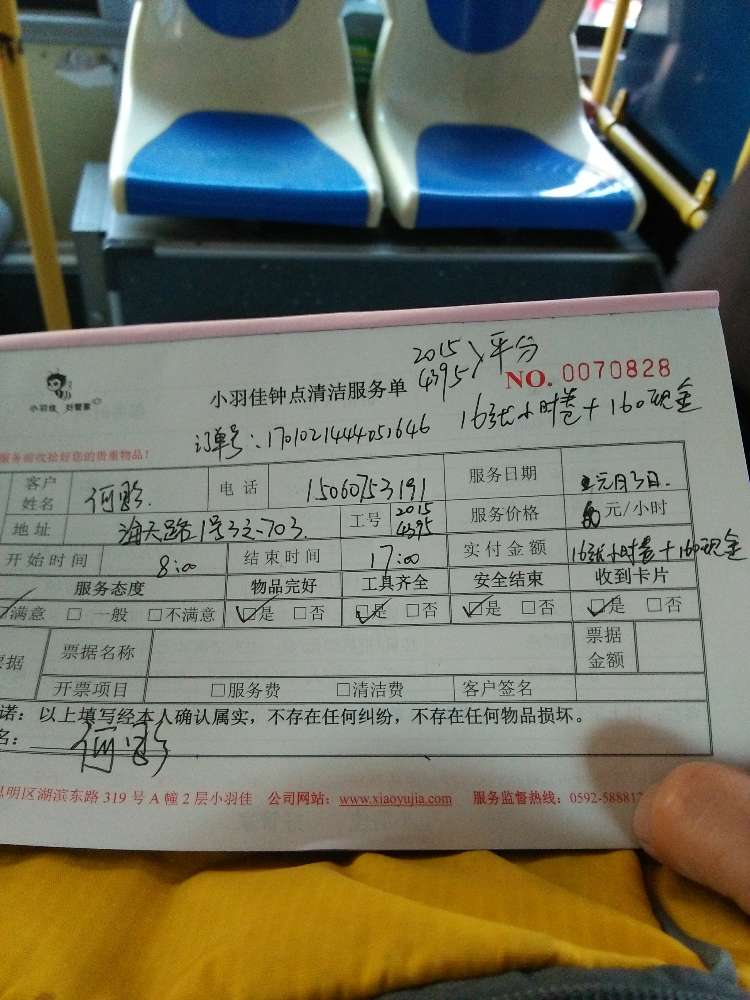 2015
4395 平分
小羽佳钟点清洁服务单 NO. 0070828
小羽佳 好管家
订单号:1701021444051646 16张小时卷+160现金
服务前收拾好您的贵重物品!
客户姓名 何影 电话 15060753191 服务日期 元月3日.
地址 海天路1号3之703 工号 2015 4395 服务价格 元/小时
开始时间 8:00 结束时间 17:00 实付金额 16张小时卷+160现金
服务态度 物品完好 工具齐全 安全结束 收到卡片
满意 □ 一般 □不满意 ☑是 □否 ☑是 □否 ☑是 □否 ☑是 □否
票据名称 票据金额
开票项目 □服务费 □清洁费 客户签名
诺:以上填写经本人确认属实,不存在任何纠纷,不存在任何物品损坏。
名: 何影
明区湖滨东路 319 号 A 幢 2 层小羽佳 公司网站:www.xiaoyujia.com 服务监督热线:0592-588812